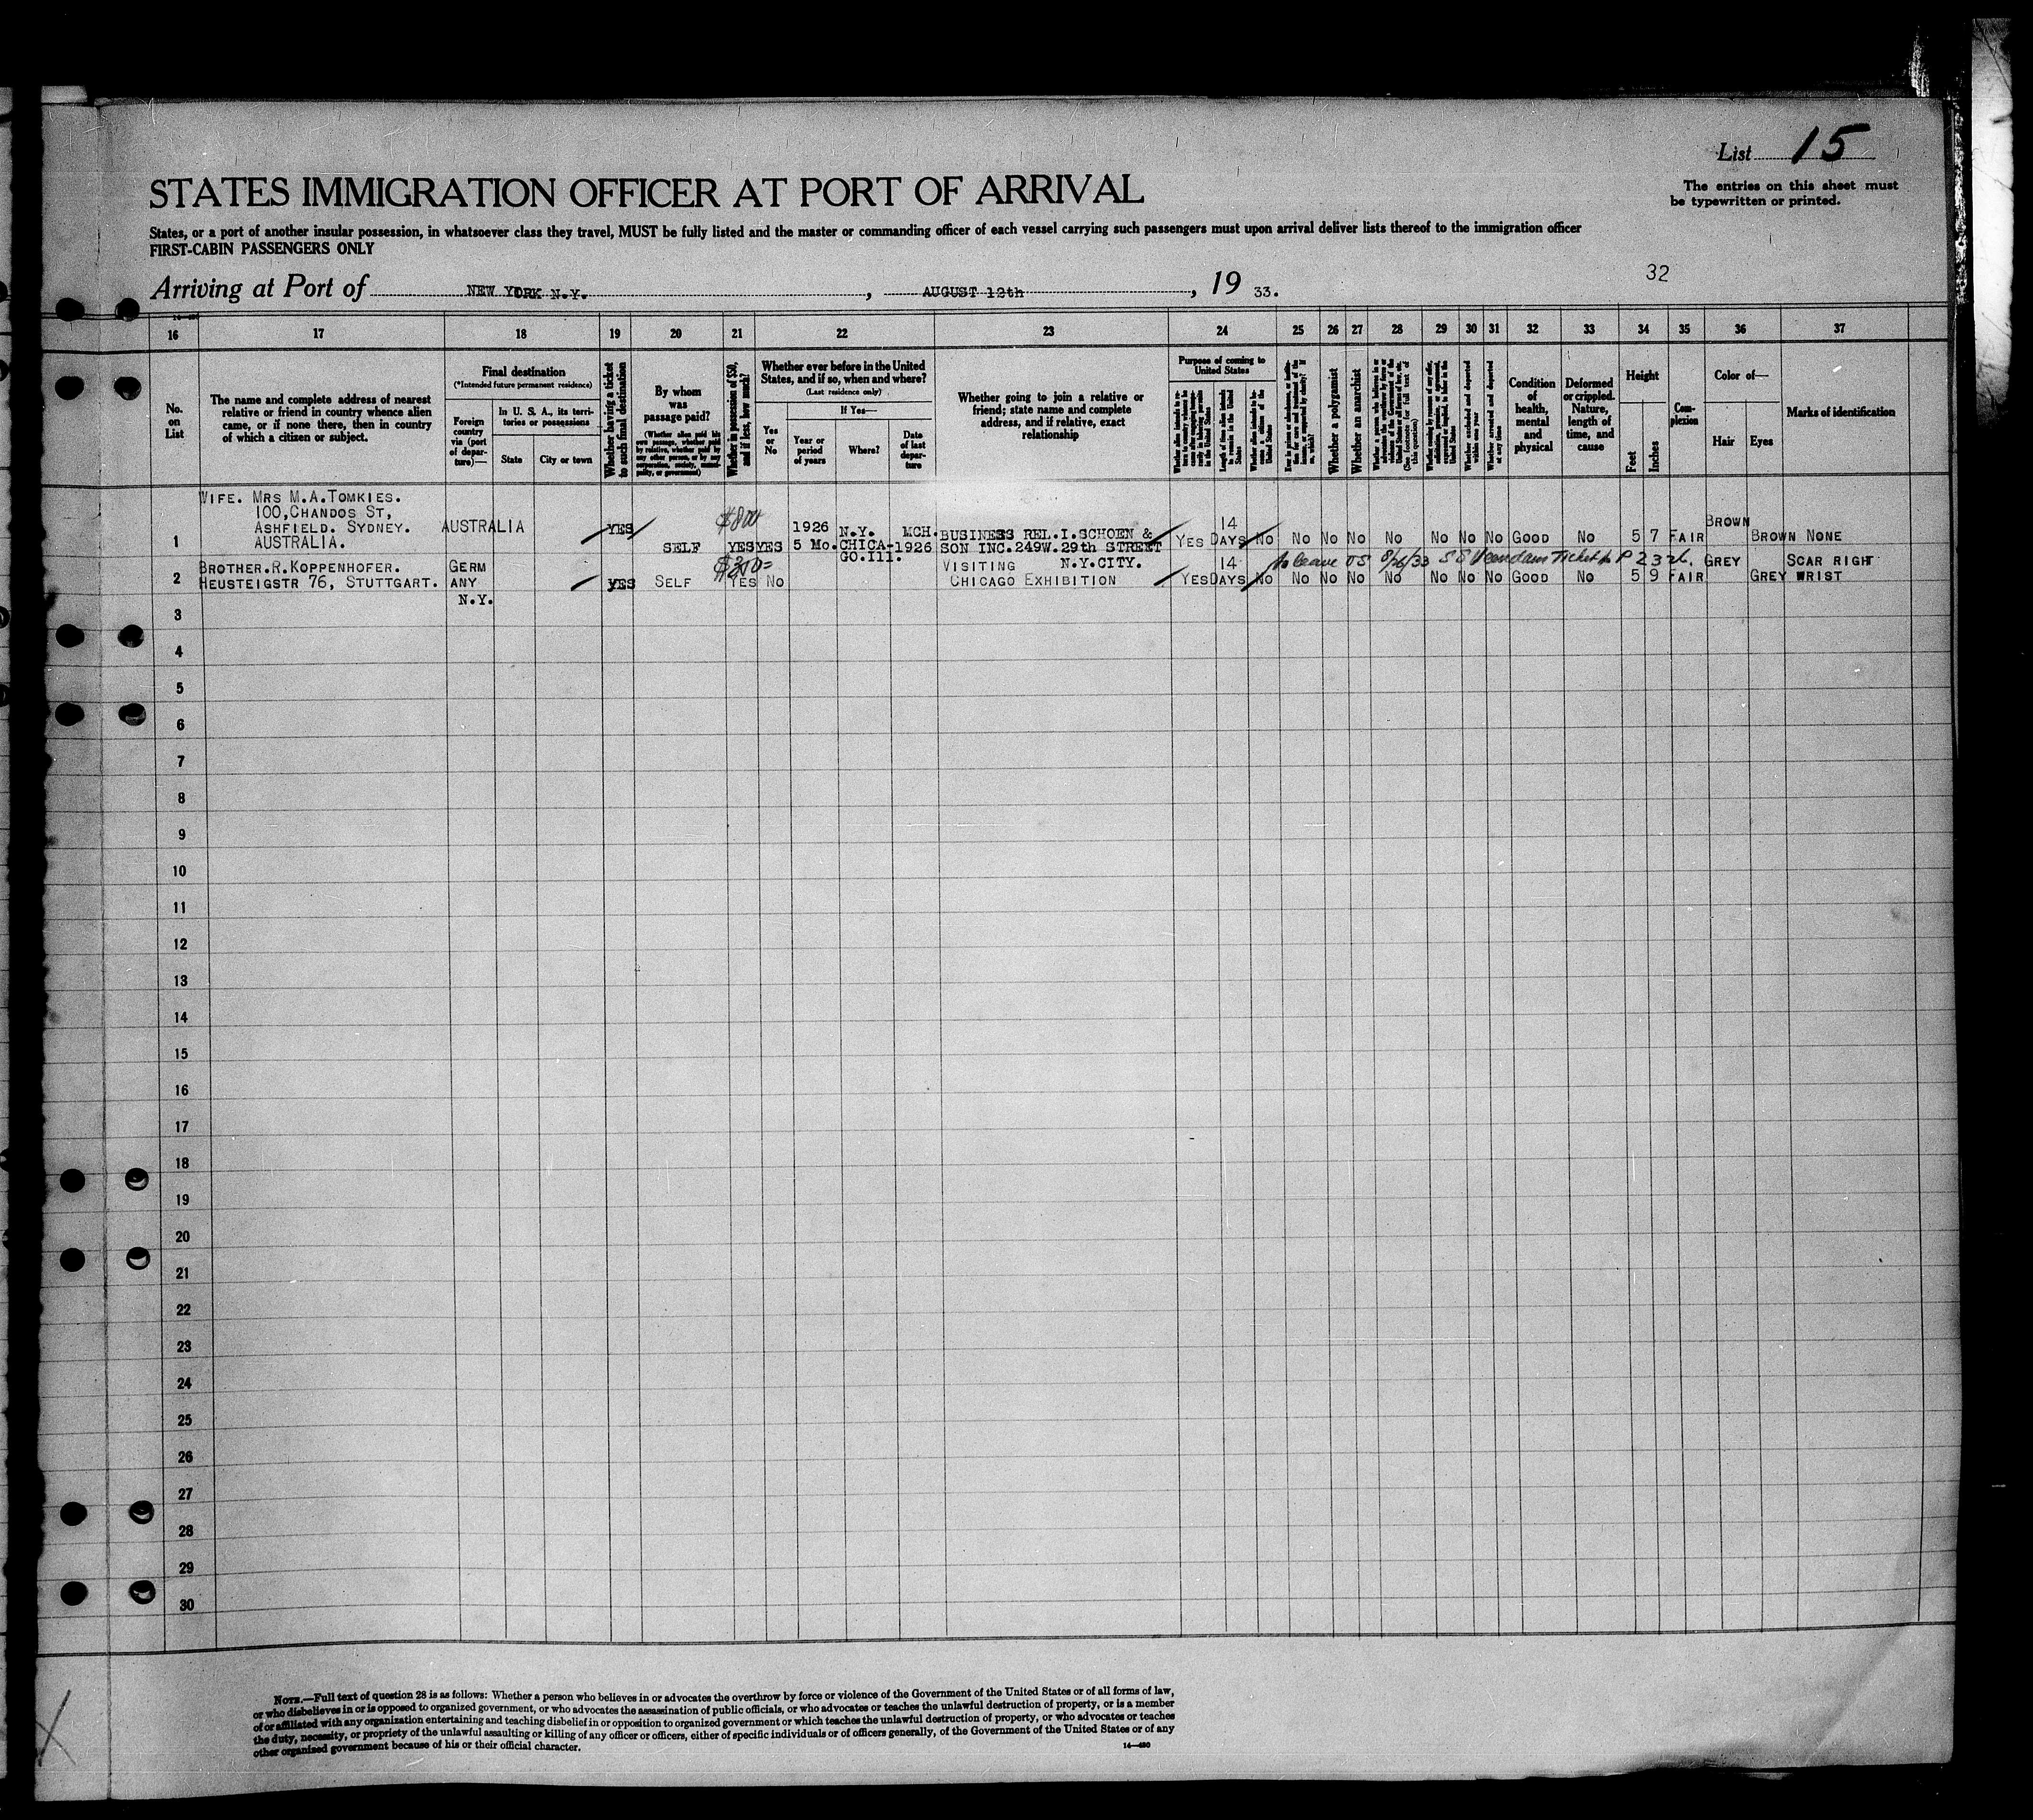 List 15
The entries on this sheet must
be typewritten or printed.
STATES IMMIGRATION OFFICER AT PORT OF ARRIVAL
States, or a port of another insular possession, in whatsoever class they travel, MUST be fully listed and the master or commanding officer of each vessel carrying such passengers must upon arrival deliver lists thereof to the immigration officer
FIRST-CABIN PASSENGERS ONLY
Arriving at Port of NEW YORK N.Y. , AUGUST 12th , 19 33.
32
16 17 18 19 20 21 22 23 24 25 26 27 28 29 30 31 32 33 34 35 36 37
No.
on
List
The name and complete address of nearest
relative or friend in country whence alien
came, or if none there, then in country
of which a citizen or subject.
Final destination
(*Intended future permanent residence)
Foreign
country
via (port
of depar-
ture)—
In U. S. A., its terri-
tories or possessions
State
City or town
Whether having a ticket
to such final destination
By whom
was
passage paid?
(Whether alien paid his
own passage, whether paid
by relative, whether paid by
any other person, or by any
corporation, society, munici-
pality, or government)
Whether in possession of $50,
and if less, how much?
Whether ever before in the United
States, and if so, when and where?
(Last residence only)
Yes
or
No
If Yes—
Year or
period
of years
Where?
Date
of last
depar-
ture
Whether going to join a relative or
friend; state name and complete
address, and if relative, exact
relationship
Purpose of coming to
United States
Length of time alien intends
to remain in the United
States
Whether a polygamist
Whether an anarchist
Whether excluded and deported
within one year
Whether arrested and deported
at any time
Condition
of
health,
mental
and
physical
Deformed
or crippled.
Nature,
length of
time, and
cause
Height
Feet
Inches
Com-
plexion
Color of—
Hair
Eyes
Marks of identification
WIFE. MRS M.A.TOMKIES.
100,CHANDOS ST,
ASHFIELD. SYDNEY.
AUSTRALIA.
1 AUSTRALIA YES SELF $800 YES YES 1926 5 Mo. N.Y. CHICA-GO.Ill. MCH. 1926 BUSINESS REL.I.SCHOEN & SON INC.249W.29th STREET N.Y.CITY. YES 14 DAYS No No No No No No No No GOOD No 5 7 FAIR BROWN BROWN NONE
to leave US 8/26/33 SS Veendam Ticket
BROTHER.R.KOPPENHOFER.
HEUSTEIGSTR 76, STUTTGART.
2 GERM ANY N.Y. YES SELF YES No VISITING CHICAGO EXHIBITION YES 14 DAYS No No No No No No No No GOOD No 5 9 FAIR GREY GREY SCAR RIGHT WRIST
3
4
5
6
7
8
9
10
11
12
13
14
15
16
17
18
19
20
21
22
23
24
25
26
27
28
29
30
NOTE.—Full text of question 28 is as follows: Whether a person who believes in or advocates the overthrow by force or violence of the Government of the United States or of all forms of law,
or who disbelieves in or is opposed to organized government, or who advocates the assassination of public officials, or who advocates or teaches the unlawful destruction of property, or is a member
of or affiliated with any organization entertaining and teaching disbelief in or opposition to organized government or which teaches the unlawful destruction of property, or who advocates or teaches
the duty, necessity, or propriety of the unlawful assaulting or killing of any officer or officers, either of specific individuals or of officers generally, of the Government of the United States or of any
other organized government because of his or their official character.
14—430